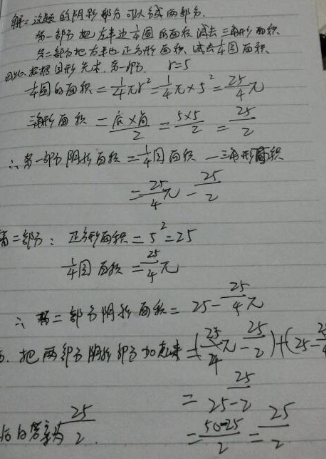 解: 这题的阴影部分可以分成两部分.
第一部分把左半边1/4圆的面积减去三角形面积
第二部分把右半边正方形面积减去1/4圆面积
r=5
1/4圆的面积=1/4πr²=1/4π×5²=25/4π
三角形面积=底×高/2=5×5/2=25/2
∴第一部分阴影面积=1/4圆面积—三角形面积
=25/4π-25/2
第二部分: 正方形面积=5²=25
1/4圆面积=25/4π
∴第二部分阴影面积=25-25/4π
把两部分阴影部分加起来=(25/4π-25/2)+(25-25/
=25-25/2
=50-25/2=25/2
答案为25/2.